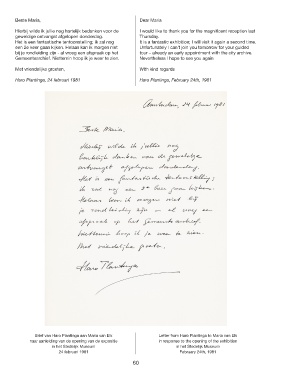 Beste Maria,
Hierbij wilde ik jullie nog hartelijk bedanken voor de
geweldige ontvangst afgelopen donderdag.
Het is een fantastische tentoonstelling; ik zal nog
een 2e keer gaan kijken. Helaas kan ik morgen niet
bij je rondleiding zijn - al vroeg een afspraak op het
Gemeentearchief. Niettemin hoop ik je weer te zien.
Met vriendelijke groeten,
Hans Plantinga, 24 februari 1981
Dear Maria
I would like to thank you for the magnificent reception last
Thursday.
It is a fantastic exhibition; I will visit it again a second time.
Unfortunately I can't join you tomorrow for your guided
tour - already an early appointment with the city archive.
Nevertheless I hope to see you again
With kind regards
Hans Plantinga, February 24th, 1981
Amsterdam, 24 februari 1981
Beste Maria,
Hierbij wilde ik jullie nog
hartelijk danken voor de geweldige
ontvangst afgelopen donderdag.
Het is een fantastische tentoonstelling;
ik zal nog een 2e keer gaan kijken.
Helaas kan ik morgen niet bij
je rondleiding zijn - al vroeg een
afspraak op het Gemeentearchief.
Niettemin hoop ik je weer te zien.
Met vriendelijke groeten,
Hans Plantinga
Brief van Hans Plantinga aan Maria van Elk
naar aanleiding van de opening van de expositie
in het Stedelijk Museum
24 februari 1981
Letter from Hans Plantinga to Maria van Elk
in response to the opening of the exhibition
in het Stedelijk Museum
February 24th, 1981
60